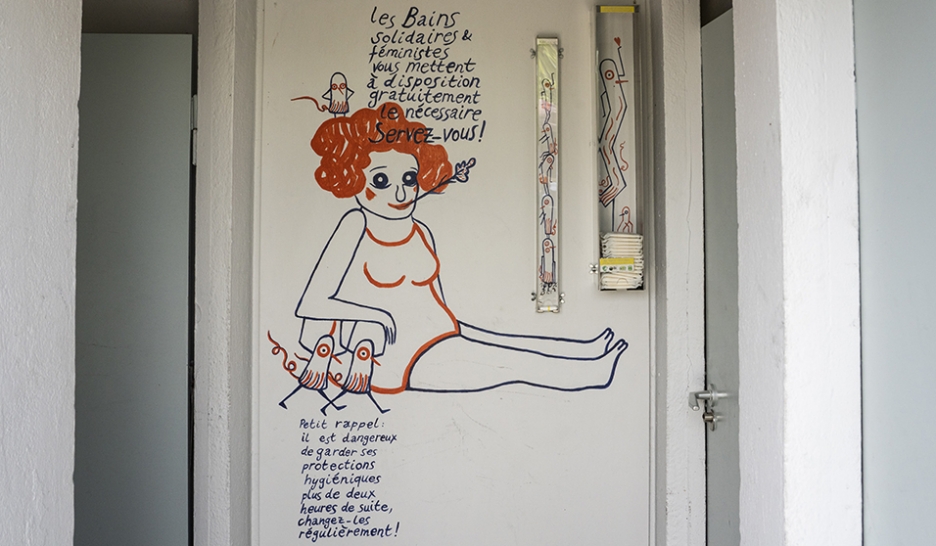 les Bains
solidaires &
féministes
vous mettent
à disposition
gratuitement
le nécessaire
Servez-vous!
Petit rappel:
il est dangereux
de garder ses
protections
hygiéniques
plus de deux
heures de suite,
changez-les
régulièrement!